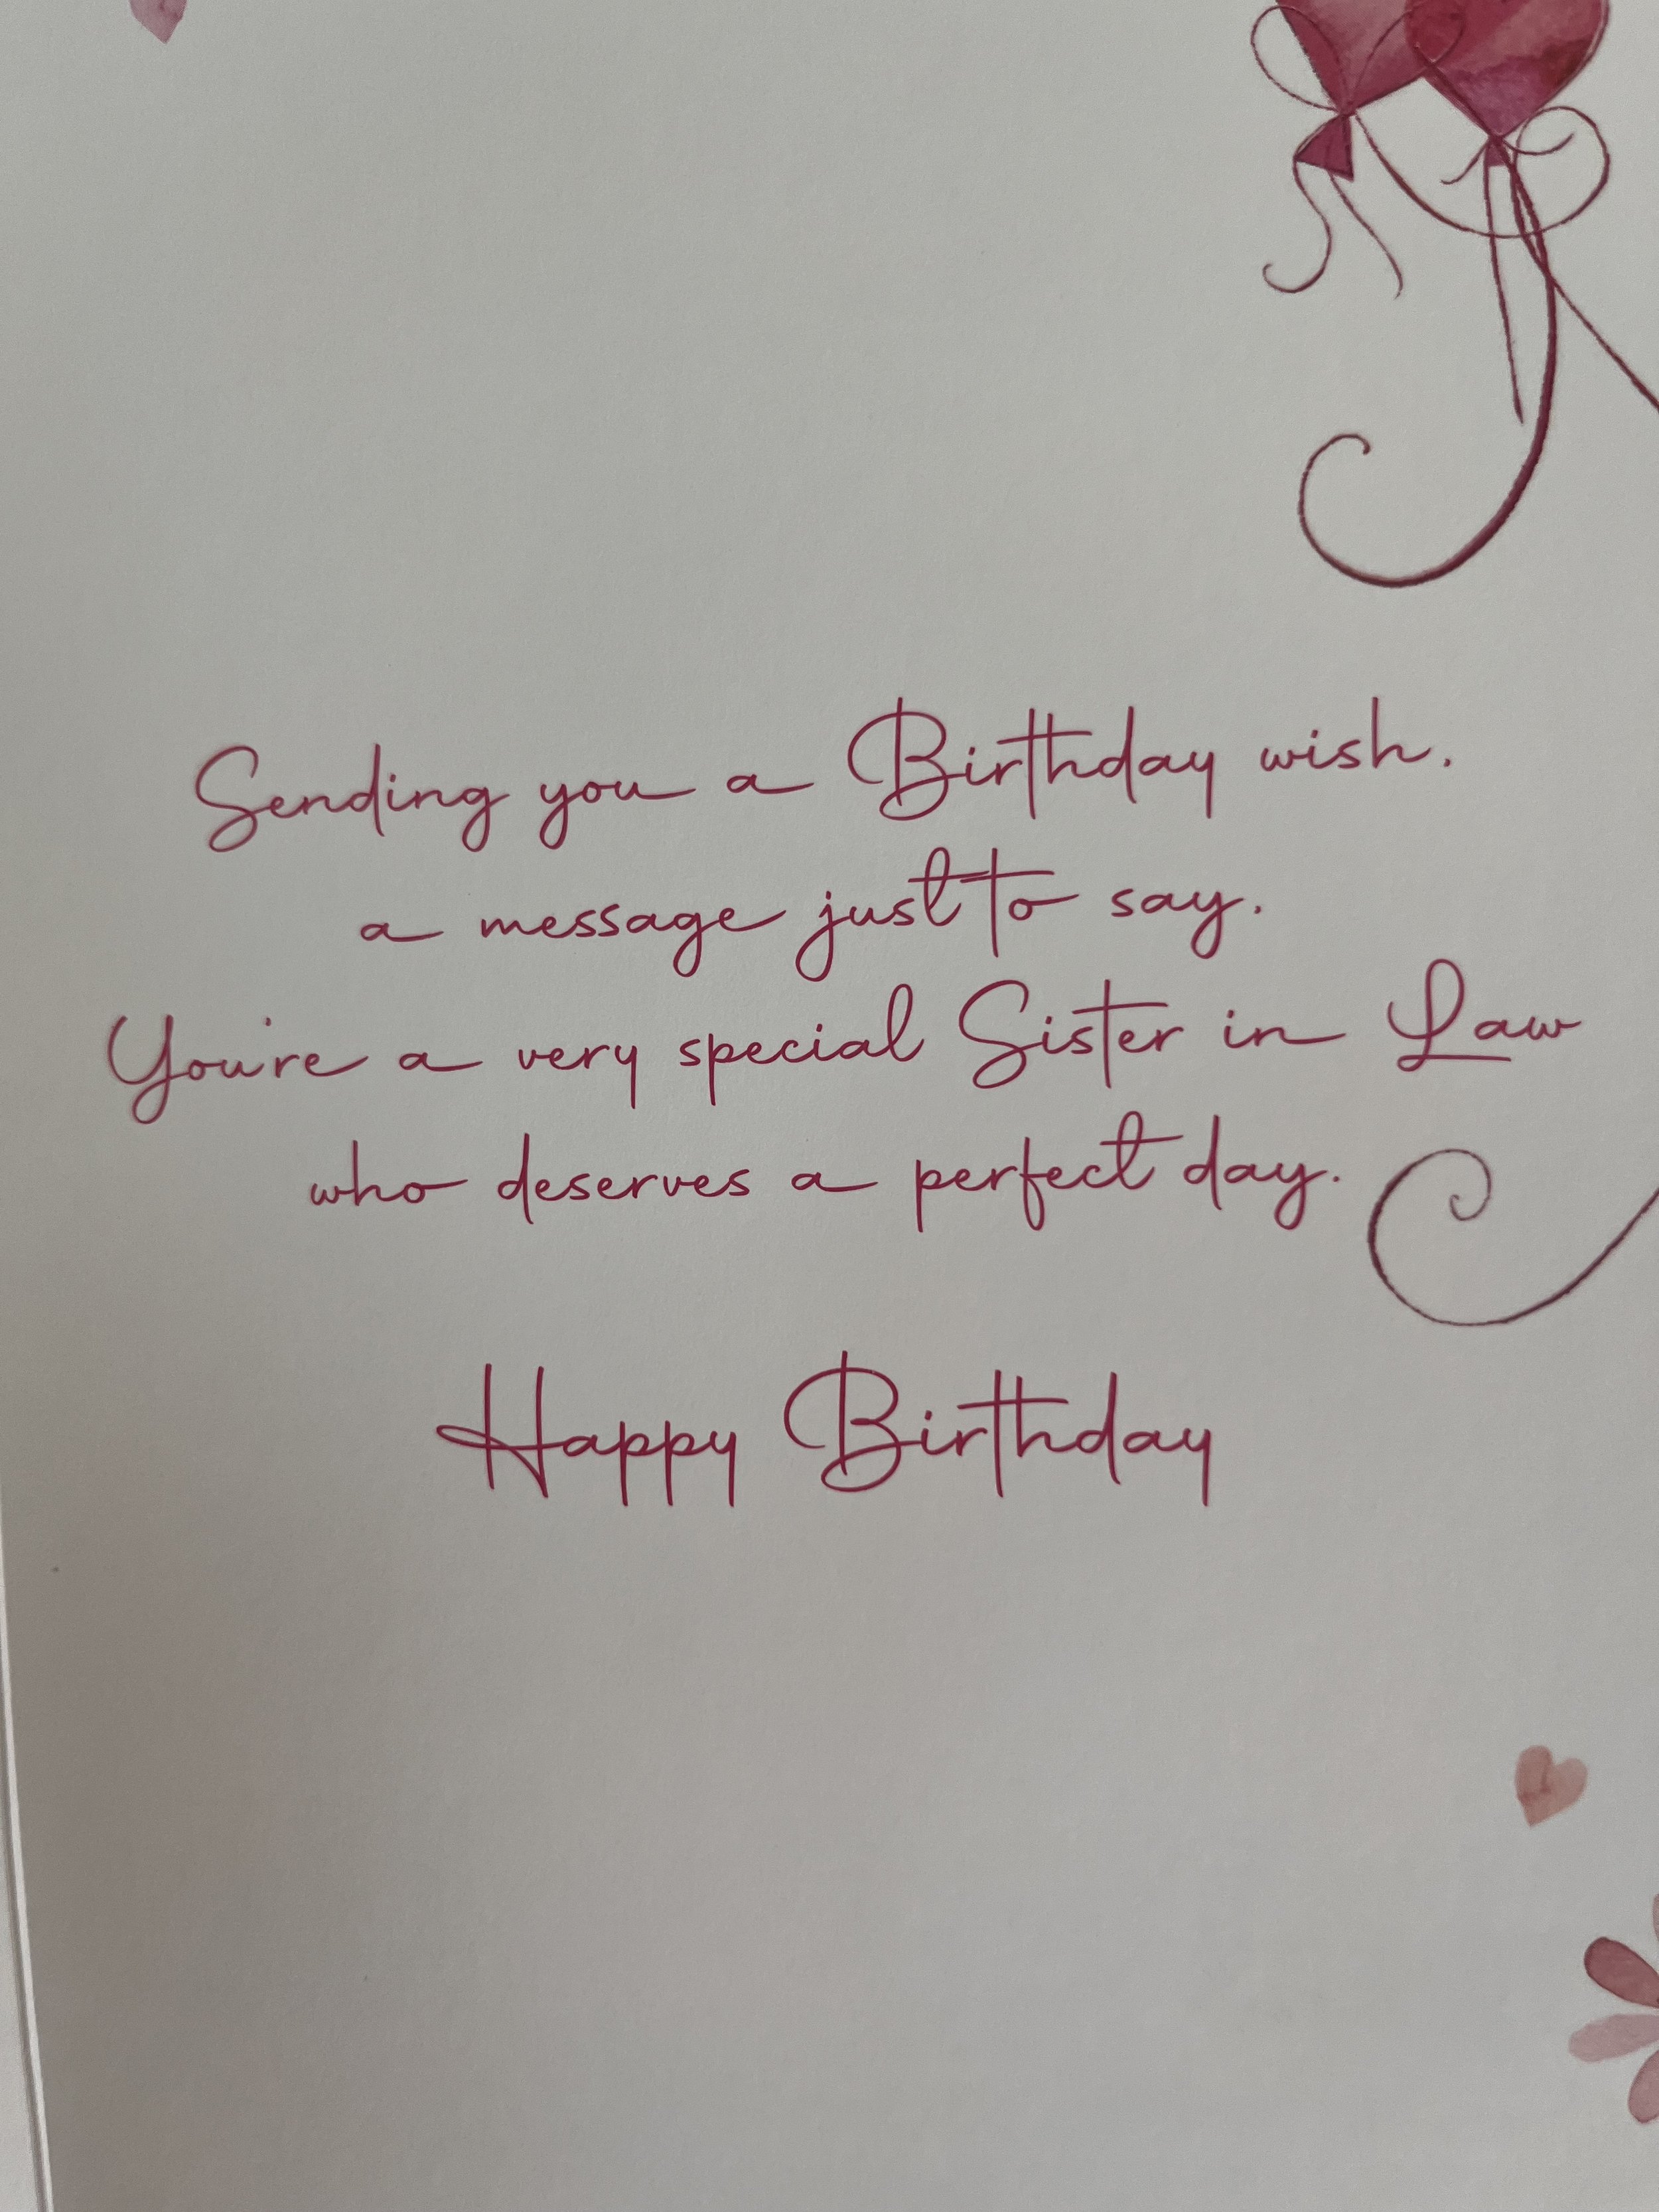 Sending you a Birthday wish.
a message just to say.
You're a very special Sister in Law
who deserves a perfect day.
Happy Birthday